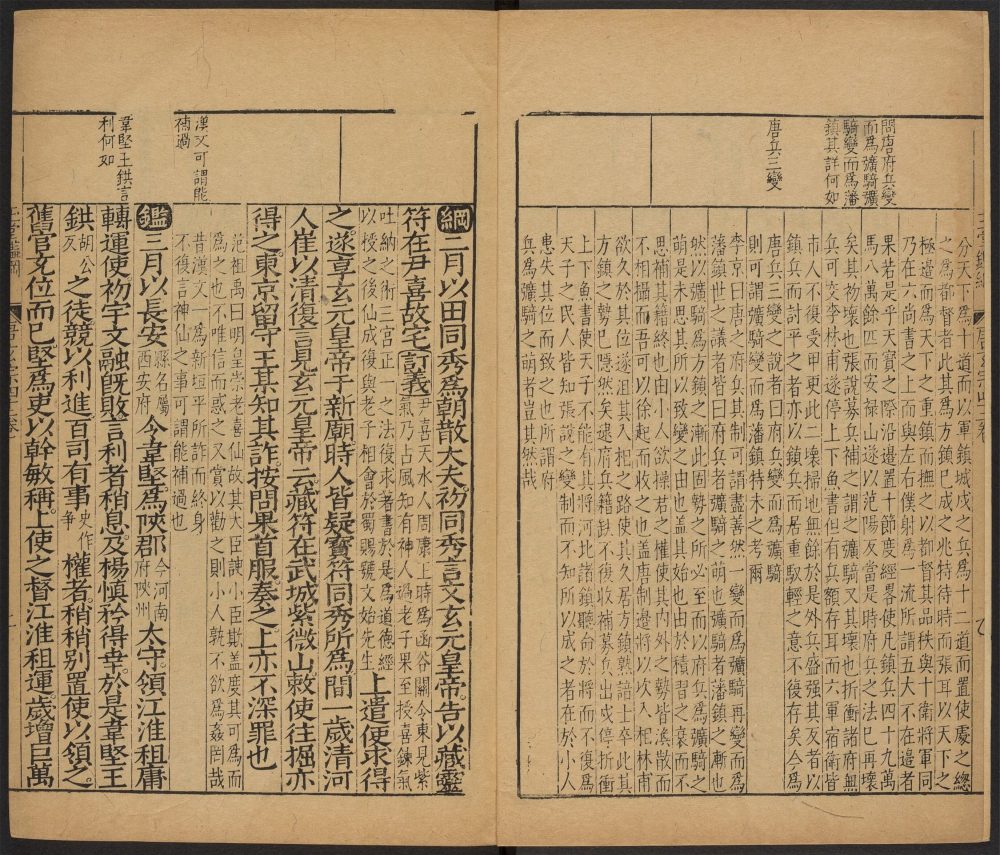 問唐府兵變
而爲彍騎彍
騎變而爲藩
鎮其詳何如
唐兵三變
分天下爲十道而以軍鎮城戍之兵爲十二道而置使處之總
之爲都督者此其爲方鎮巳成之兆特待時而張耳以天下之
極邊而爲天下之重鎮而撫之以都督其品秩與十衛將軍同
乃在六尚書之上而與左右僕射爲一流所謂五大不在邉者
果若是乎天寶之際沿邉置十節度經畧使凡鎮兵四十九萬
馬八萬餘匹而安禄山遂以范陽反當是時府兵之法巳再壊
矣其初壊也張說募兵補之謂之彍騎又其壊也折衝諸府無
兵可交李林甫遂停上下魚書但有兵額存耳而六軍宿衛皆
市人不復受甲更此二壊掃地無餘於是外兵盛强其反者以
鎮兵而討平之者亦以鎮兵而居重馭輕之意不復存矣今爲
唐兵三變之說者曰府兵變而爲彍騎
則可謂彍騎變而爲藩鎮特未之考爾
李京曰唐之府兵其制可謂盡善然一變而爲彍騎再變而爲
藩鎮世之議者皆曰彍騎者府兵之萌也藩鎮者彍騎之漸也
然以彍騎之變爲方鎮之漸此固勢之所必至而以府兵爲彍騎之
萌是未思其所以致變之由也盖其始也由於積習之衰而不
思補其籍終也由小人欲操若之權使其内外之勢皆渙散而
不相攝而吾可以徐起而收之也盖唐制邉將以次入相林甫
欲久於其位遂沮其入相之路使其久居方鎮熟諳士卒此其
方鎮之勢巳隠然矣逮府兵籍缺不復收補募兵出戍停折衝
上下魚書使天子不能有其將河北諸鎮聽命於將而不復爲
天子之民人皆知張說之變制而不知所以成之者在於小人
患失其位而致之也所謂府
兵爲彍騎之萌者豈其然哉
漢文可謂能
補過
韋堅王鉷言
利何如
綱二月以田同秀爲朝散大夫初同秀言又玄元皇帝告以藏靈
符在尹喜故宅訂義尹喜天水人周康上時爲函谷關令東見紫
氣乃占風知有神人過老子果至授喜鍊氣
吐納之術三宫正一之法後求著書於是爲道德經
以授之後仙成後與老子相會於蜀賜號文始先生上遣使求得
之遂享玄元皇帝于新廟時人皆疑寶符同秀所爲間一歳清河
人崔以清復言見玄元皇帝云藏符在武城紫微山敕使往掘亦
得之東京留守王其知其詐按問果首服奏之上亦不深罪也
范祖禹曰明皇崇老喜仙故其大臣諛小臣欺盖度其可爲而
爲之也不唯信而惑之又賞以勸之則小人孰不欲爲姦罔哉
昔漢文一爲新垣平所詐而終身
不復言神仙之事可謂能補過也
鑑三月以長安縣名屬
西安府令韋堅爲陝郡今河南
府陝州太守領江淮租庸
轉運使初宇文融旣敗言利者稍息及楊慎矜得幸於是韋堅王
鉷胡公
反之徒競以利進百司有事史作
爭權者稍稍别置使以領之
舊官充位而巳堅爲吏以幹敏稱上使之督江淮租運歳增巨萬